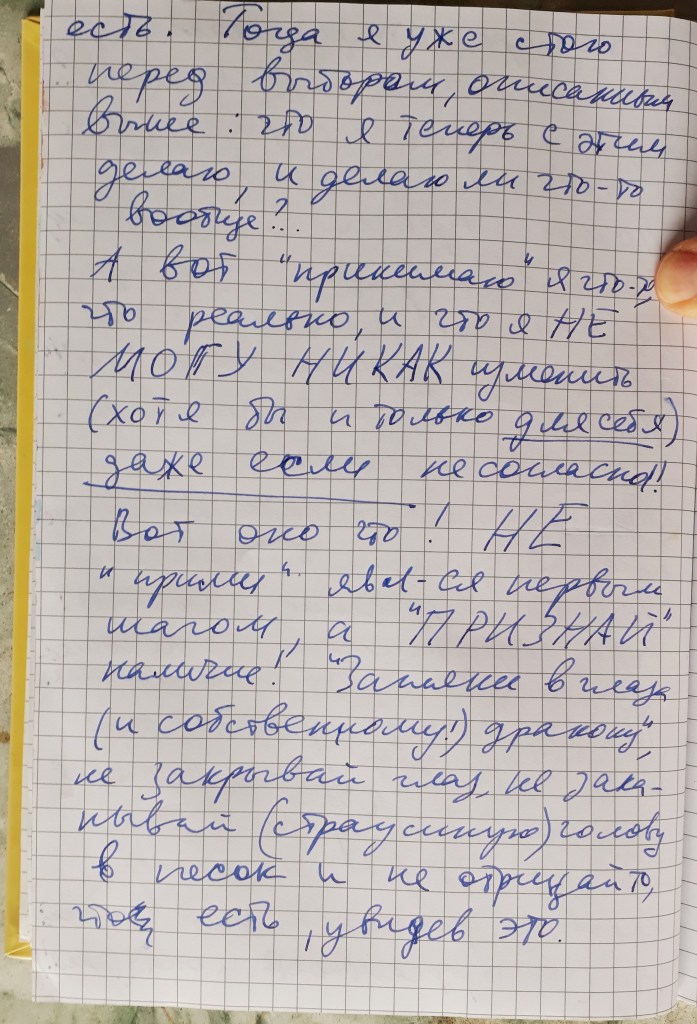 есть. Тогда я уже стою
перед выбором, описанным
выше: что я теперь с этим
делаю, и делаю ли что-то
вообще?..
А вот "принимаю" я что-то,
что реально, и что я НЕ
МОГУ НИКАК изменить
(хотя бы и только для себя)
даже если не согласна!!
Вот оно что! НЕ
"прими" явл-ся первым
шагом, а "ПРИЗНАЙ"
наличие! "Загляни в глаза
(и собственному!) дракону",
не закрывай глаз, не зака-
пывай (страусиную) голову
в песок и не отрицай то,
что есть, увидев это.